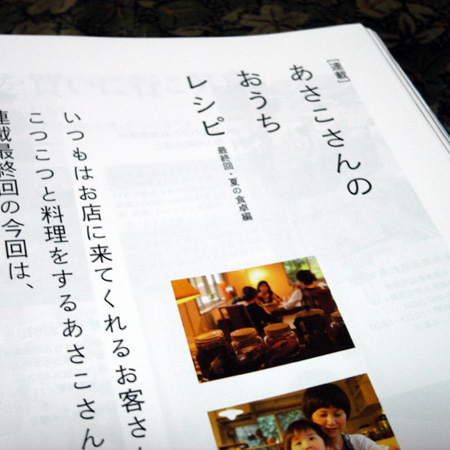 ［連載］
あさこさんの
おうち
レシピ
最終回・夏の食卓編
いつもはお店に来てくれるお客さ
こつこつと料理をするあさこさん
連載最終回の今回は、